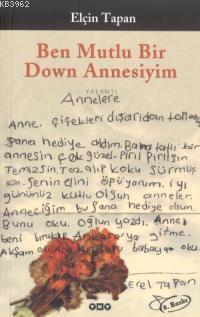 Elçin Tapan
Ben Mutlu Bir
Down Annesiyim
YAŞANTI
Annelere
Anne, çiçekleri dışarıdan
Sana hediye aldım. Bana bir
annesin çok güzel. Piril Pirilsin
Temizsin. Toz alıp koku sürmüş
sün. Senin elini öpüyorum. iyi
gününüz kutlu olsun anneler.
Anneciğim bu sana hediye olsun.
Bunu oku. Oğlun yazdı. Anne
beni bırakıp Ankara'ya gitme.
Akşam
Erel Tapan
8. Baskı
YKY